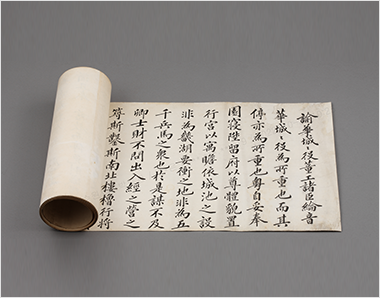 諭華城〻役董工諸臣綸音
華城〻役為所重也而其
停亦為所重也粤自妥奉
園寢陞留府以尊體貌置
行宮以寓瞻依城池之設
非為畿湖要衝之地非為五
千兵馬之衆也於是謀不及
卿士財不問出入經之營之
築斯鑿斯南北樓櫓行將